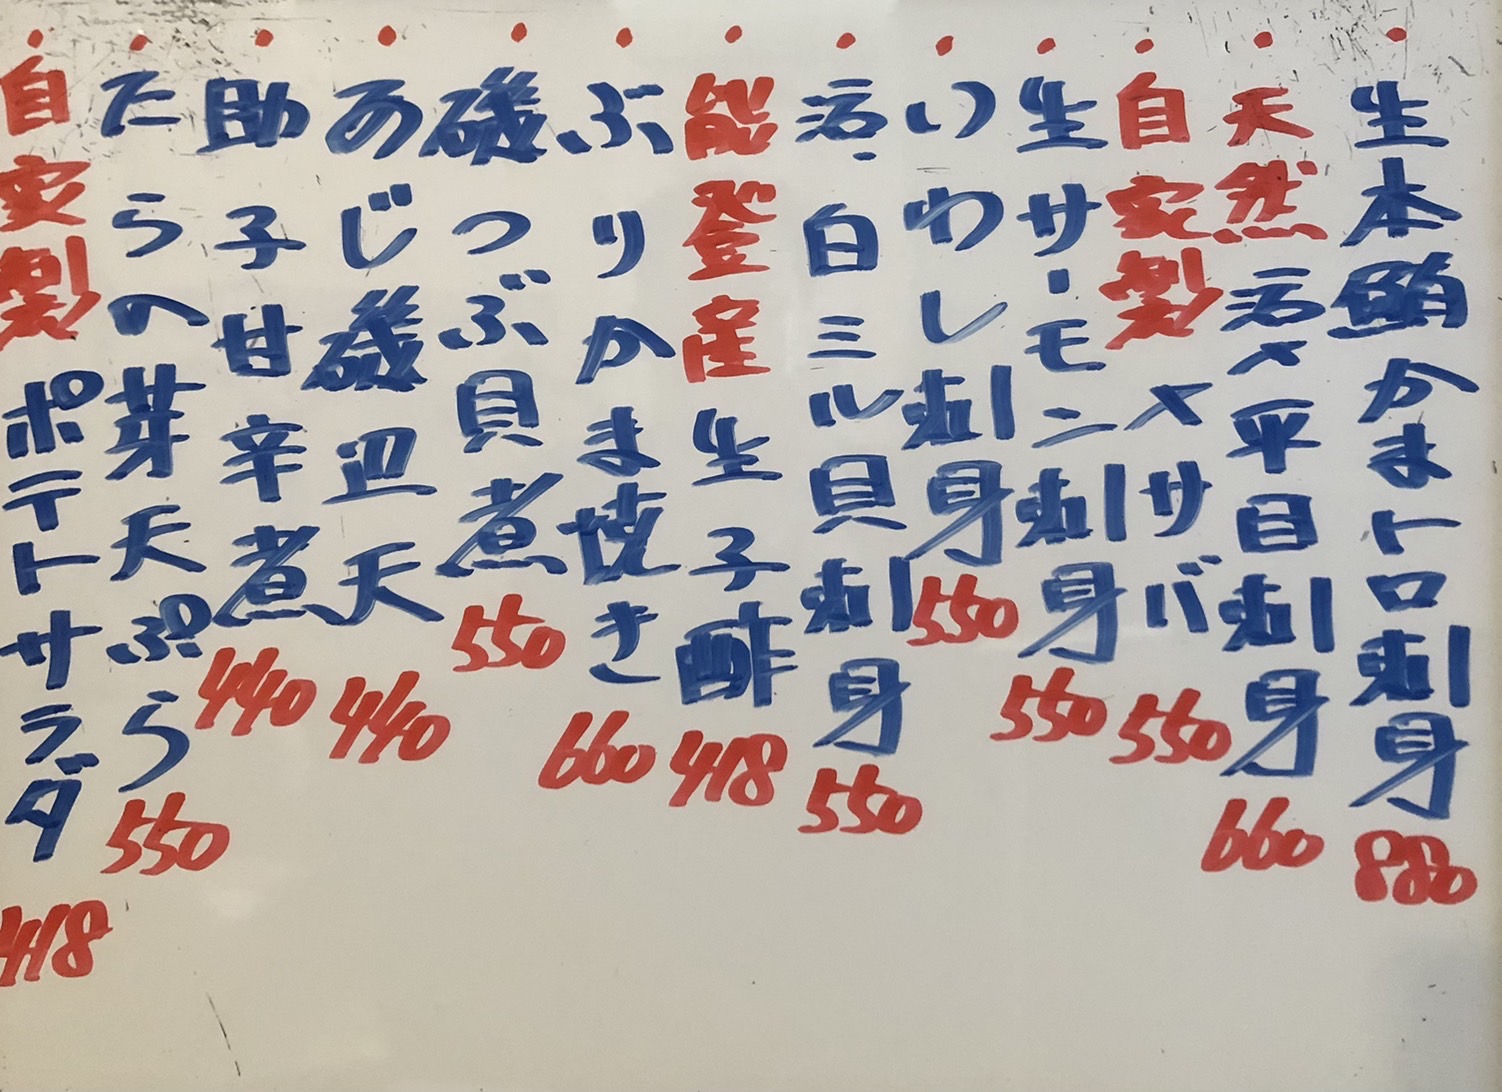 ・生本鮪かまトロ刺身880
・天然活〆平目刺身660
・自家製〆サバ550
・生サーモン刺身550
・いわし刺身550
・活・白ミル貝刺身550
・能登産生子酢418
・ぶりかま焼き660
・磯つぶ貝煮550
・あじ磯辺天440
・助子甘辛煮440
・たらの芽天ぷら550
・自家製ポテトサラダ418